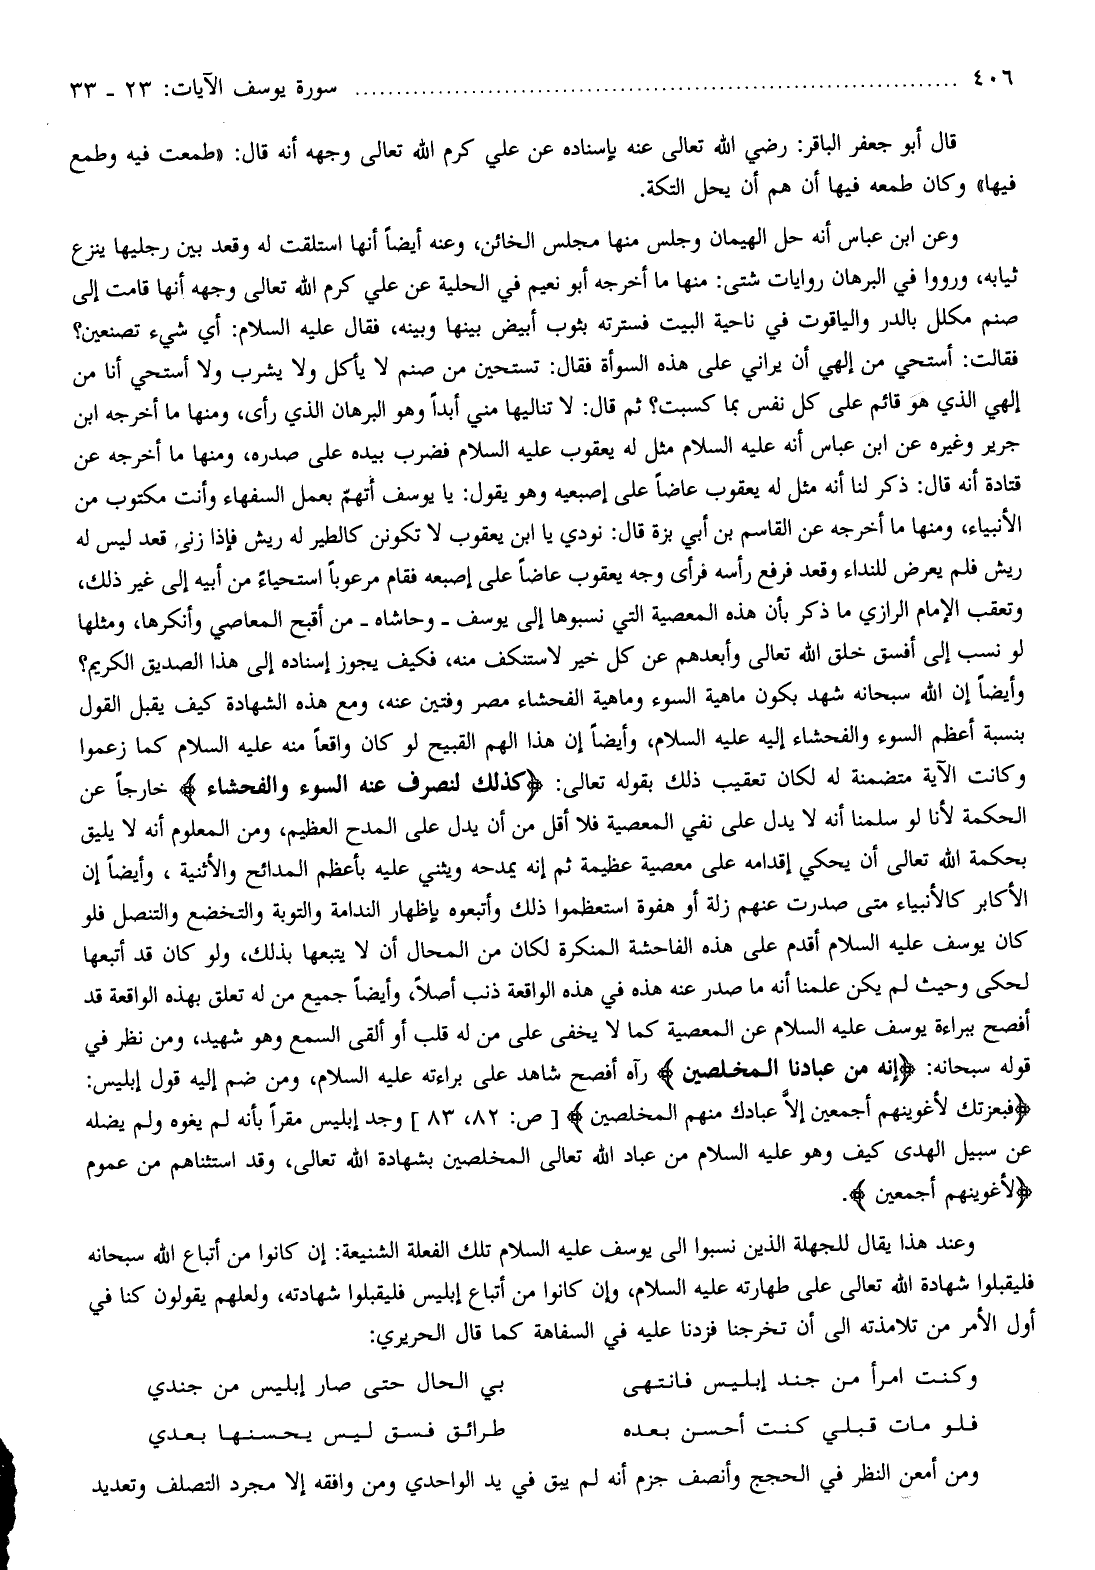 ٤٠٦ ........................................................................ سورة يوسف الآيات: ٢٣ ـ ٣٣
قال أبو جعفر الباقر: رضي الله تعالى عنه بإسناده عن علي كرم الله تعالى وجهه أنه قال: «طمعت فيه وطمع
فيها» وكان طمعه فيها أن هم أن يحل التكة.
وعن ابن عباس أنه حل الهيمان وجلس منها مجلس الخائن، وعنه أيضاً أنها استلقت له وقعد بين رجليها ينزع
ثيابه، ورووا في البرهان روايات شتى: منها ما أخرجه أبو نعيم في الحلية عن علي كرم الله تعالى وجهه أنها قامت إلى
صنم مكلل بالدر والياقوت في ناحية البيت فسترته بثوب أبيض بينها وبينه، فقال عليه السلام: أي شيء تصنعين؟
فقالت: أستحي من إلهي أن يراني على هذه السوأة فقال: تستحين من صنم لا يأكل ولا يشرب ولا أستحي أنا من
إلهي الذي هوَ قائم على كل نفس بما كسبت؟ ثم قال: لا تناليها مني أبداً وهو البرهان الذي رأى، ومنها ما أخرجه ابن
جرير وغيره عن ابن عباس أنه عليه السلام مثل له يعقوب عليه السلام فضرب بيده على صدره، ومنها ما أخرجه عن
قتادة أنه قال: ذكر لنا أنه مثل له يعقوب عاضاً على إصبعيه وهو يقول: يا يوسف أتهمّ بعمل السفهاء وأنت مكتوب من
الأنبياء، ومنها ما أخرجه عن القاسم بن أبي بزة قال: نودي يا ابن يعقوب لا تكونن كالطير له ريش فإذا زنى قعد ليس له
ريش فلم يعرض للنداء وقعد فرفع رأسه فرأى وجه يعقوب عاضاً على إصبعه فقام مرعوباً استحياءً من أبيه إلى غير ذلك،
وتعقب الإمام الرازي ما ذكر بأن هذه المعصية التي نسبوها إلى يوسف ـ وحاشاه ـ من أقبح المعاصي وأنكرها، ومثلها
لو نسب إلى أفسق خلق الله تعالى وأبعدهم عن كل خير لاستنكف منه، فكيف يجوز إسناده إلى هذا الصديق الكريم؟
وأيضاً إن الله سبحانه شهد بكون ماهية السوء وماهية الفحشاء مصر وفتين عنه، ومع هذه الشهادة كيف يقبل القول
بنسبة أعظم السوء والفحشاء إليه عليه السلام، وأيضاً إن هذا الهم القبيح لو كان واقعاً منه عليه السلام كما زعموا
وكانت الآية متضمنة له لكان تعقيب ذلك بقوله تعالى: ﴿كذلك لنصرف عنه السوء والفحشاء﴾ خارجاً عن
الحكمة لأنا لو سلمنا أنه لا يدل على نفي المعصية فلا أقل من أن يدل على المدح العظيم، ومن المعلوم أنه لا يليق
بحكمة الله تعالى أن يحكي إقدامه على معصية عظيمة ثم إنه يمدحه ويثني عليه بأعظم المدائح والأثنية ، وأيضاً إن
الأكابر كالأنبياء متى صدرت عنهم زلة أو هفوة استعظموا ذلك وأتبعوه بإظهار الندامة والتوبة والتخضع والتنصل فلو
كان يوسف عليه السلام أقدم على هذه الفاحشة المنكرة لكان من المحال أن لا يتبعها بذلك، ولو كان قد أتبعها
لحكى وحيث لم يكن علمنا أنه ما صدر عنه هذه في هذه الواقعة ذنب أصلاً، وأيضاً جميع من له تعلق بهذه الواقعة قد
أفصح ببراءة يوسف عليه السلام عن المعصية كما لا يخفى على من له قلب أو ألقى السمع وهو شهيد، ومن نظر في
قوله سبحانه: ﴿إنه من عبادنا المخلصين﴾ رآه أفصح شاهد على براءته عليه السلام، ومن ضم إليه قول إبليس:
﴿فبعزتك لأغوينهم أجمعين إلاَّ عبادك منهم المخلصين﴾ [ ص: ٨٢، ٨٣ ] وجد إبليس مقراً بأنه لم يغوه ولم يضله
عن سبيل الهدى كيف وهو عليه السلام من عباد الله تعالى المخلصين بشهادة الله تعالى، وقد استثناهم من عموم
﴿لأغوينهم أجمعين﴾.
وعند هذا يقال للجهلة الذين نسبوا الى يوسف عليه السلام تلك الفعلة الشنيعة: إن كانوا من أتباع الله سبحانه
فليقبلوا شهادة الله تعالى على طهارته عليه السلام، وإن كانوا من أتباع إبليس فليقبلوا شهادته، ولعلهم يقولون كنا في
أول الأمر من تلامذته الى أن تخرجنا فزدنا عليه في السفاهة كما قال الحريري:
وكنت امرأ من جند إبليس فانتهى بي الحال حتى صار إبليس من جندي
فلو مات قبلي كنت أحسن بعده طرائق فسق ليس يحسنها بعدي
ومن أمعن النظر في الحجج وأنصف جزم أنه لم يبق في يد الواحدي ومن وافقه إلا مجرد التصلف وتعديد